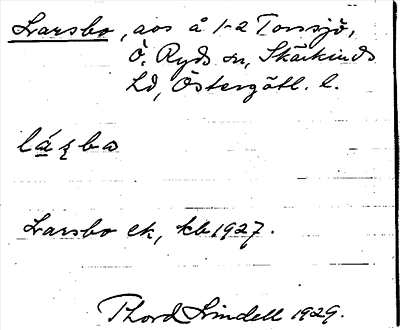 Larsbo, aos å 1-2 Torssjö,
Ö. Ryds sn, Skärkinds
hd, Östergötl. l.
lázba
Larsbo ek, kb 1927.
Thord Lindell 1929.